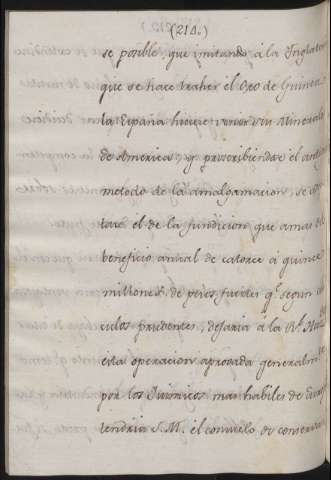 (214.)
se posible, que imitando á la Inglater
que se hace traher el Oro de Guinea
la España hiciese venir su Mineral
de America, y proscribiendose el antig
metodo de la amalgamacion, se
tare el de la fundicion que amas de
beneficio anual de catorce á quince
millones de pesos fuertes q.e segun cal
culos prudentes, dejaria á la R.l
esta operacion aprovada generalm.te
por los Quimicos mas habiles de
tendria S.M. el consuelo de conserva